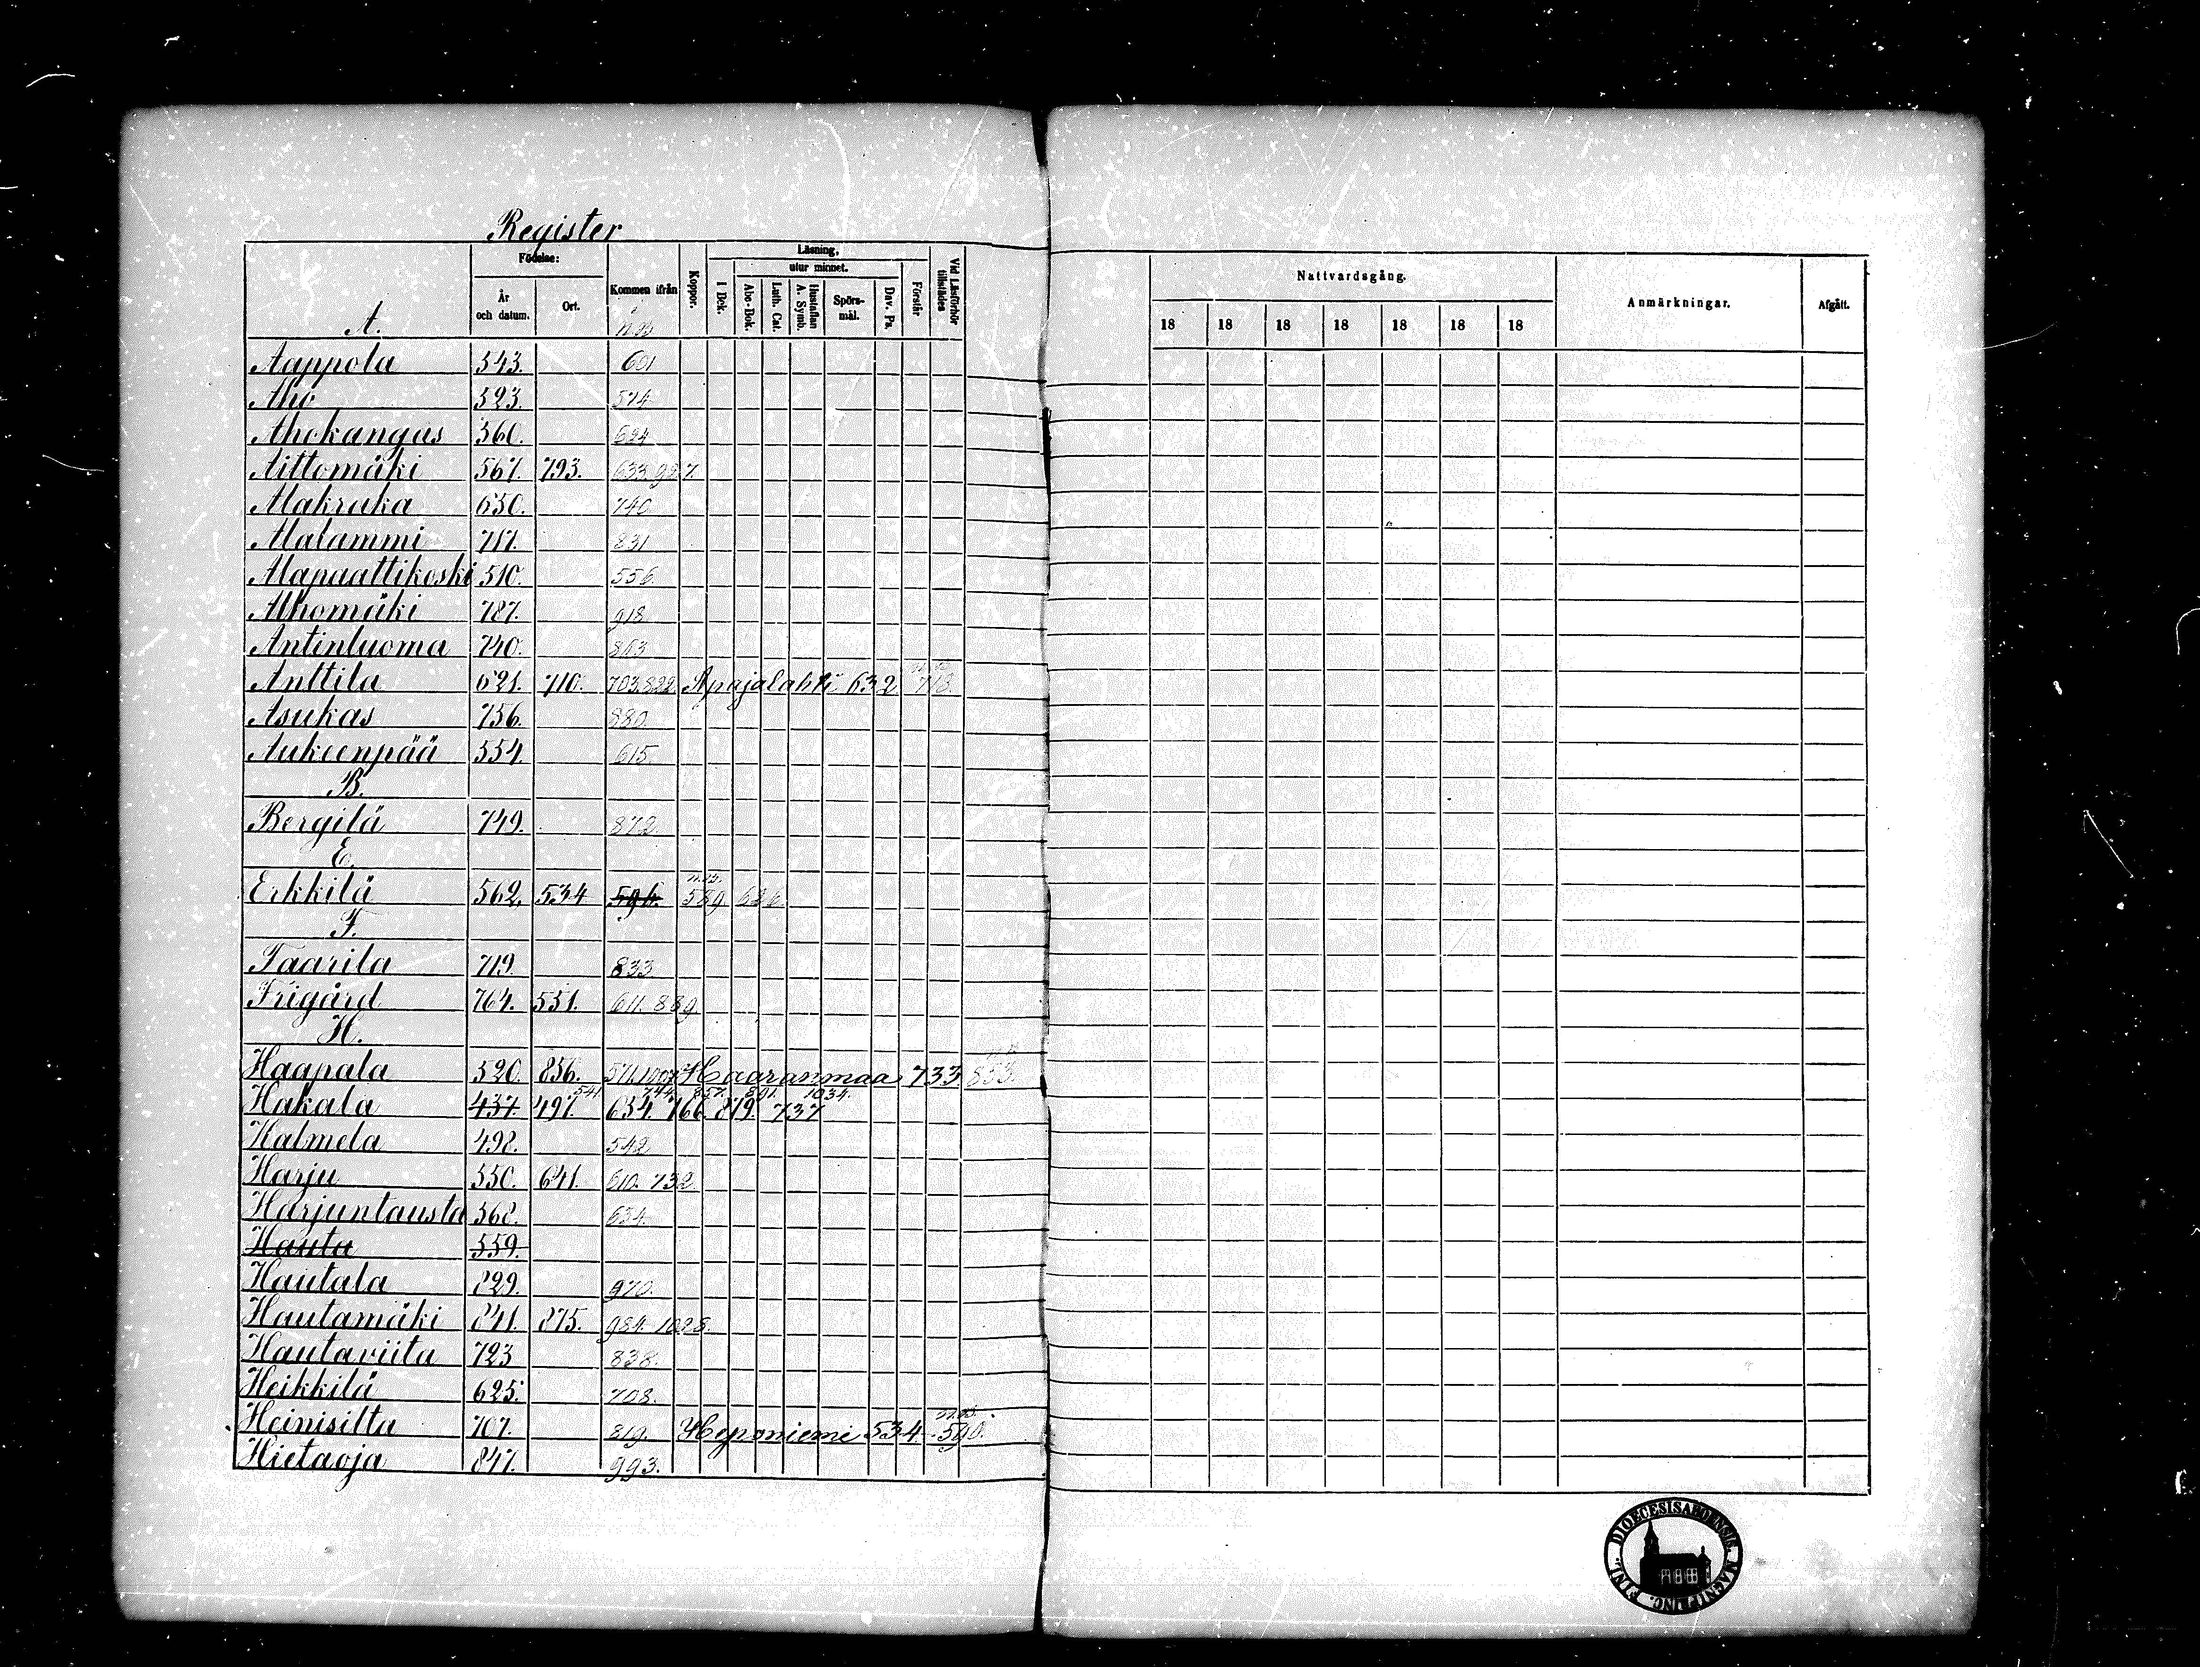 Register
Födelse:
År och datum.
Ort.
Kommen ifrån
Koppor.
Läsning,
I Bok.
utur minnet.
Abc-Bok.
Luth. Cat.
Hustaflan A. Symb.
Spörsmål.
Dav. Ps.
Förstår
Vid Läsförhör tillstädes
Nattvardsgång.
18 18 18 18 18 18 18
Anmärkningar.
Afgått.
A.
Aappola 543. 601
Aho 523. 574
Ahokangas 560. 624
Aittomäki 567. 793. 633. 927.
Alakruka 650. 740
Alalammi 717. 831
Alapaattikoski 510. 556
Alhomäki 787. 918.
Antinluoma 740. 863
Anttila 621. 710. 703. 822 Apajalahti 632 713.
Asukas 756. 880.
Aukeenpää 554. 615
B.
Bergilä 749. 872.
E.
Erkkilä 562. 534 596. 589 626
F.
Faarila 719. 833
Frigård 764. 551. 611. 889
H.
Haapala 520. 856. 571. 1007 Haaranmaa 733 853.
541. 744. 857. 891. 1034.
Hakala 437. 497. 654. 766. 879. 737
Halmela 498. 542
Harju 550. 641. 610. 732
Harjuntausta 568. 634.
Hauta 559.
Hautala 829. 970.
Hautamäki 841. 875. 984. 1028.
Hautaviita 723 838.
Heikkilä 625. 708.
Heinisilta 707. 819. Heponiemi 534 590.
Hietaoja 847. 993.
DIOECESIS ABOENSIS. MAGNI DUC. FINL.